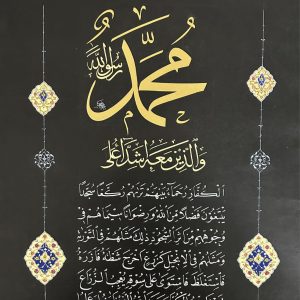 محمد
رسول الله
والذين معه أشداء على
الكفار رحماء بينهم تراهم ركعا سجدا
يبتغون فضلا من الله ورضوانا سيماهم في
وجوههم من أثر السجود ذلك مثلهم في التورية
ومثلهم في الإنجيل كزرع أخرج شطئه فآزره
فاستغلظ فاستوى على سوقه يعجب الزراع